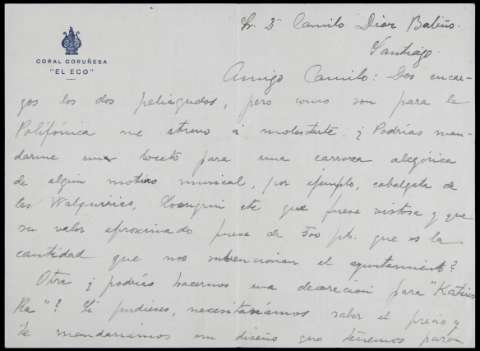 CORAL CORUÑESA
"EL ECO"
Sr. D. Camilo Díaz Baliño.
Santiago.
Amigo Camilo: Dos encar-
gos los dos peliagudos, pero como son para la
Polifónica me atrevo a molestarte. ¿Podrías man-
darme un boceto para una carroza alegórica
de algún motivo musical, por ejemplo, cabalgata de
las Walquirias, etc que fuese vistosa y que
su valor aproximado fuese de 500 pts. que es la
cantidad que nos subvencionan el ayuntamient?
Otra ¿podrías hacernos una decoración para "Katius
Ka"? Si pudieses, necesitaríamos saber el precio y
te mandaríamos un diseño que tenemos para